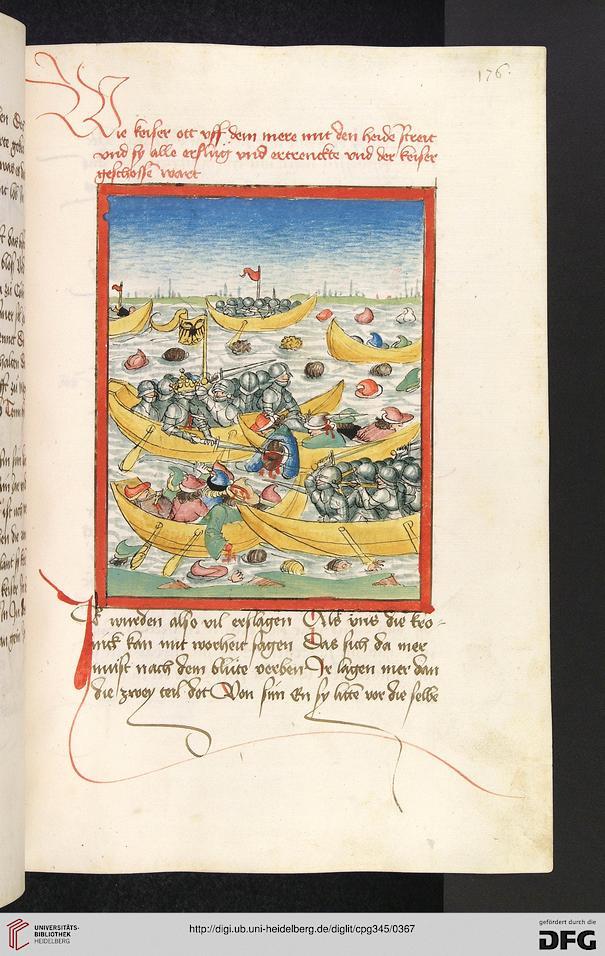 176.
Wie keiser ott uff dem mere mit den heiden streit
vnd sy alle erslug vnd ertrenckte vnd der keiser
geschossen wart
Ir wurden also vil erslagen Als vns die kro-
nick kan mit worheit sagen Das sich da mer
must nach dem blute verben Ir lagen mer dan
die zwey teil dot Von sin En sy litte vor die selbe
UNIVERSITÄTS-
BIBLIOTHEK
HEIDELBERG
http://digi.ub.uni-heidelberg.de/diglit/cpg345/0367
gefördert durch die
DFG